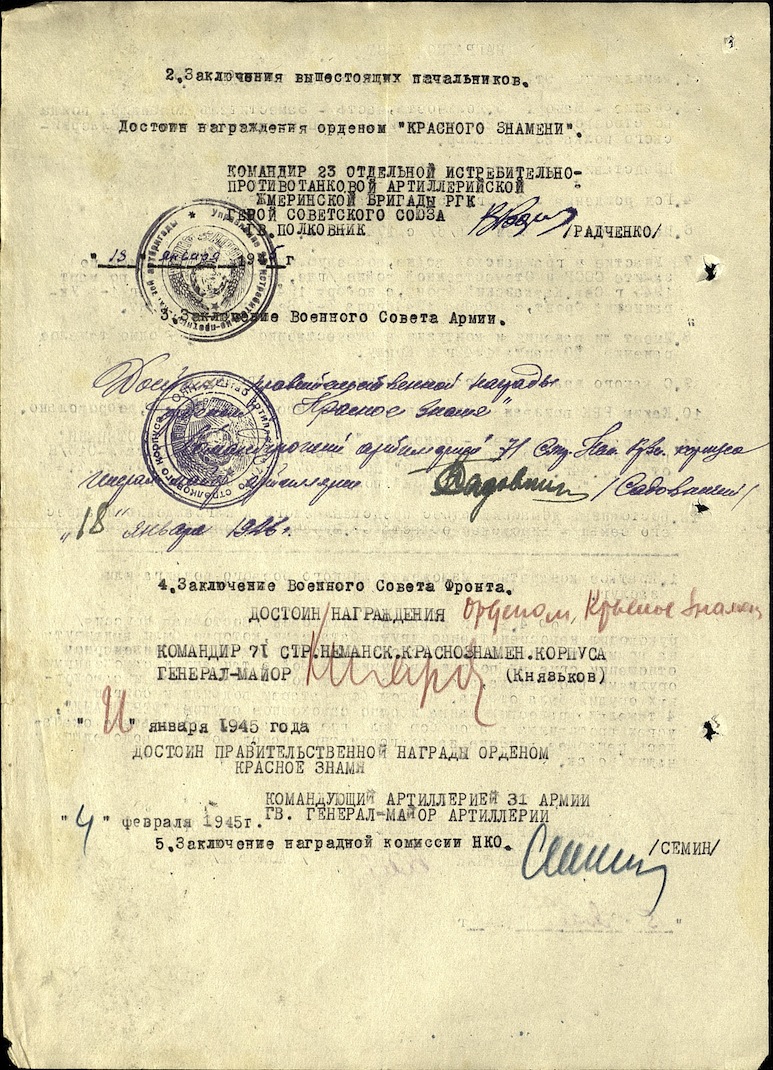 2.Заключения вышестоящих начальников.
Достоин награждения орденом "КРАСНОГО ЗНАМЕНИ".
КОМАНДИР 23 ОТДЕЛЬНОЙ ИСТРЕБИТЕЛЬНО-
ПРОТИВОТАНКОВОЙ АРТИЛЛЕРИЙСКОЙ
ЖМЕРИНСКОЙ БРИГАДЫ РГК
ГЕРОЙ СОВЕТСКОГО СОЮЗА
ГВ.ПОЛКОВНИК /РАДЧЕНКО/
" января 194 г
3.Заключение Военного Совета Армии.
Достоин правительственной награды
орденом "Красное знамя"
Командующий артиллерией 71 Стр. Нем. корпуса
генерал-майор артиллерии /Садовский/
"18" января 194 г.
4.Заключение Военного Совета Фронта.
ДОСТОИН НАГРАЖДЕНИЯ орденом, Красное Знамя
КОМАНДИР 71 СТР.НЕМАНСК.КРАСНОЗНАМЕН.КОРПУСА
ГЕНЕРАЛ-МАЙОР (Князьков)
" " января 1945 года
ДОСТОИН ПРАВИТЕЛЬСТВЕННОЙ НАГРАДЫ ОРДЕНОМ
КРАСНОЕ ЗНАМЯ
КОМАНДУЮЩИЙ АРТИЛЛЕРИЕЙ 31 АРМИИ
ГВ. ГЕНЕРАЛ-МАЙОР АРТИЛЛЕРИИ
"4" февраля 1945г.
5.Заключение наградной комиссии НКО. /СЕМИН/